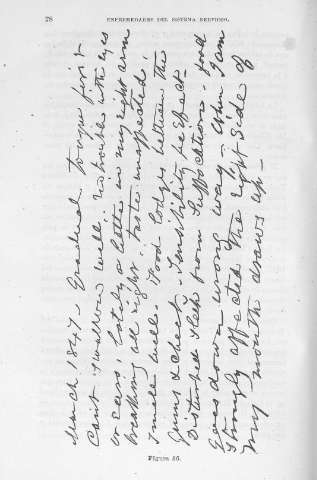 28
ENFERMEDADES DEL SISTEMA NERVIOSO.
March 1847 - Gradual tongue first
Cant swallow well, no trouble with eyes
or ears, lately a little in my right arm
breathing all right, taste unaffected,
Smile well. Food lodges between the
gums & cheek - Sensibility perfect -
Disturbed sleep from suffocation - food
goes down wrong way, when I am
strongly affected the right side of
my mouth draws up -
Figura 46.